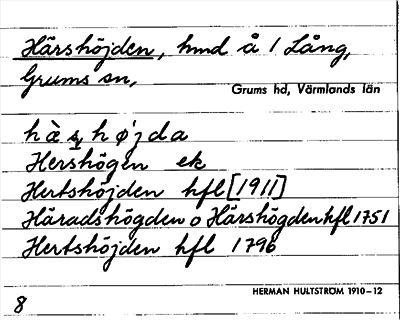 Härshöjden, hmd å 1 Lång,
Grums sn,
Grums hd, Värmlands län
hà̤ s̱ hǿjda
Hershögen ek
Hertshöjden hfl [1911]
Häradshögden o Härshögden hfl 1751
Hertshöjden hfl 1796
HERMAN HULTSTRÖM 1910–12
8